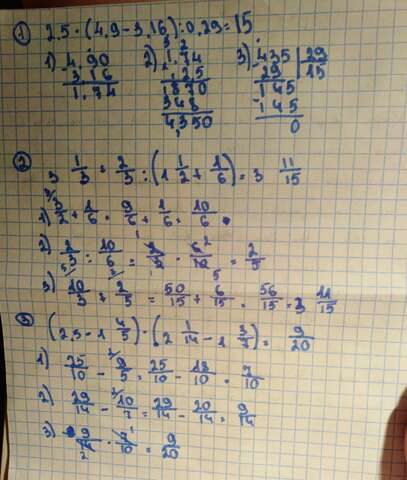 ① 2,5 · (4,9 - 3,16) : 0,29 = 15
1) 4,90
3,16
1,74
2) 1,74
2,5
870
348
4,350
3) 435 | 29
29 | 15
145
145
0
② 3 1/3 + 2/5 : (1 1/2 + 1/6) = 3 11/15
1) 3/2 + 1/6 = 9/6 + 1/6 = 10/6
2) 2/3 : 10/6 = 2/5 · 6/10 = 2/5
3) 10/3 + 2/5 = 50/15 + 6/15 = 56/15 = 3 11/15
③ (2,5 - 1 4/5) · (2 1/14 - 1 3/7) = 9/20
1) 25/10 - 9/5 = 25/10 - 18/10 = 7/10
2) 29/14 - 10/7 = 29/14 - 20/14 = 9/14
3) 9/14 · 7/10 = 9/20